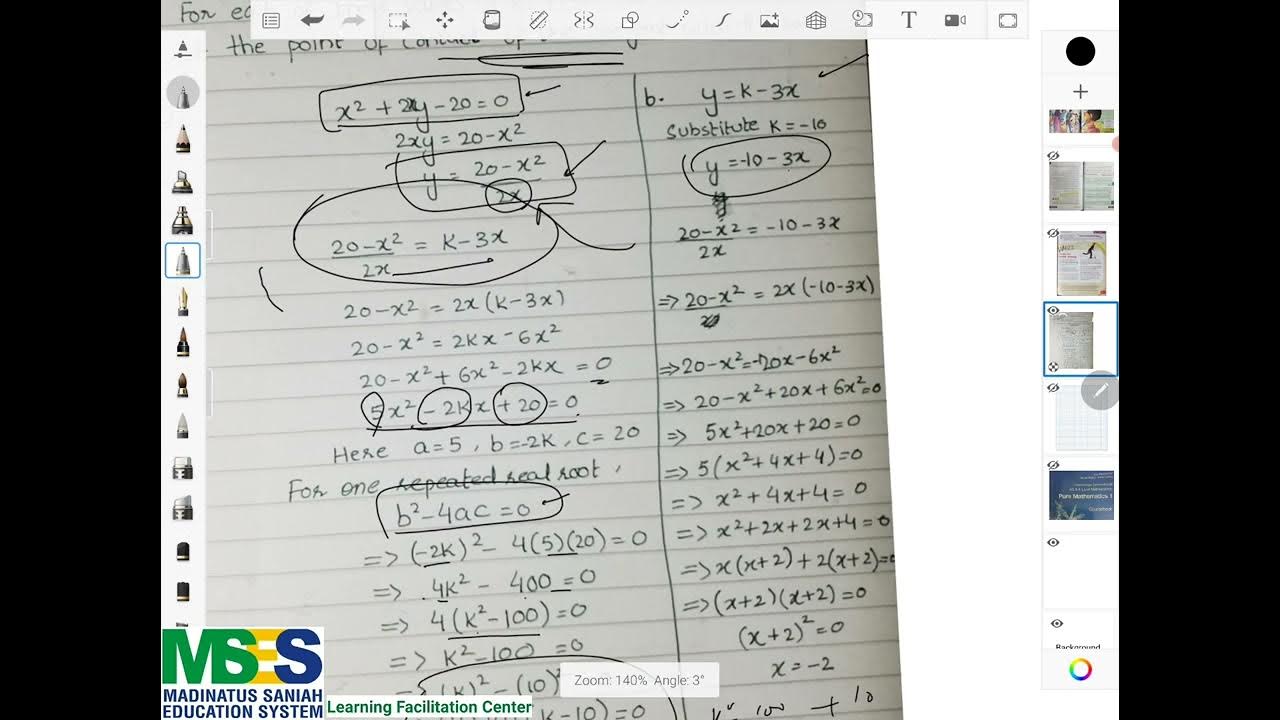 For ea
the point of contact of
x² + 2xy - 20 = 0
2xy = 20 - x²
y = 20 - x²
2x
20 - x² = K - 3x
2x
20 - x² = 2x (K - 3x)
20 - x² = 2Kx - 6x²
20 - x² + 6x² - 2Kx = 0
5x² - 2Kx + 20 = 0
Here a = 5 , b = -2K , c = 20
For one repeated real root ,
b² - 4ac = 0
=> (-2K)² - 4(5)(20) = 0
=> 4K² - 400 = 0
=> 4(K² - 100) = 0
=> K² - 100 = 0
=> (K)² - (10)²
K - 10) = 0
b. y = K - 3x
Substitute K = -10
y = -10 - 3x
20 - x² = -10 - 3x
2x
=> 20 - x² = 2x (-10 - 3x)
=> 20 - x² = -20x - 6x²
=> 20 - x² + 20x + 6x² = 0
=> 5x² + 20x + 20 = 0
=> 5(x² + 4x + 4) = 0
=> x² + 4x + 4 = 0
=> x² + 2x + 2x + 4 = 0
=> x(x+2) + 2(x+2) = 0
=> (x+2)(x+2) = 0
(x+2)² = 0
x = -2
K² 100 + 10
T
Pure Mathematics 1
Background
Zoom: 140% Angle: 3°
MSES
MADINATUS SANIAH
EDUCATION SYSTEM
Learning Facilitation Center